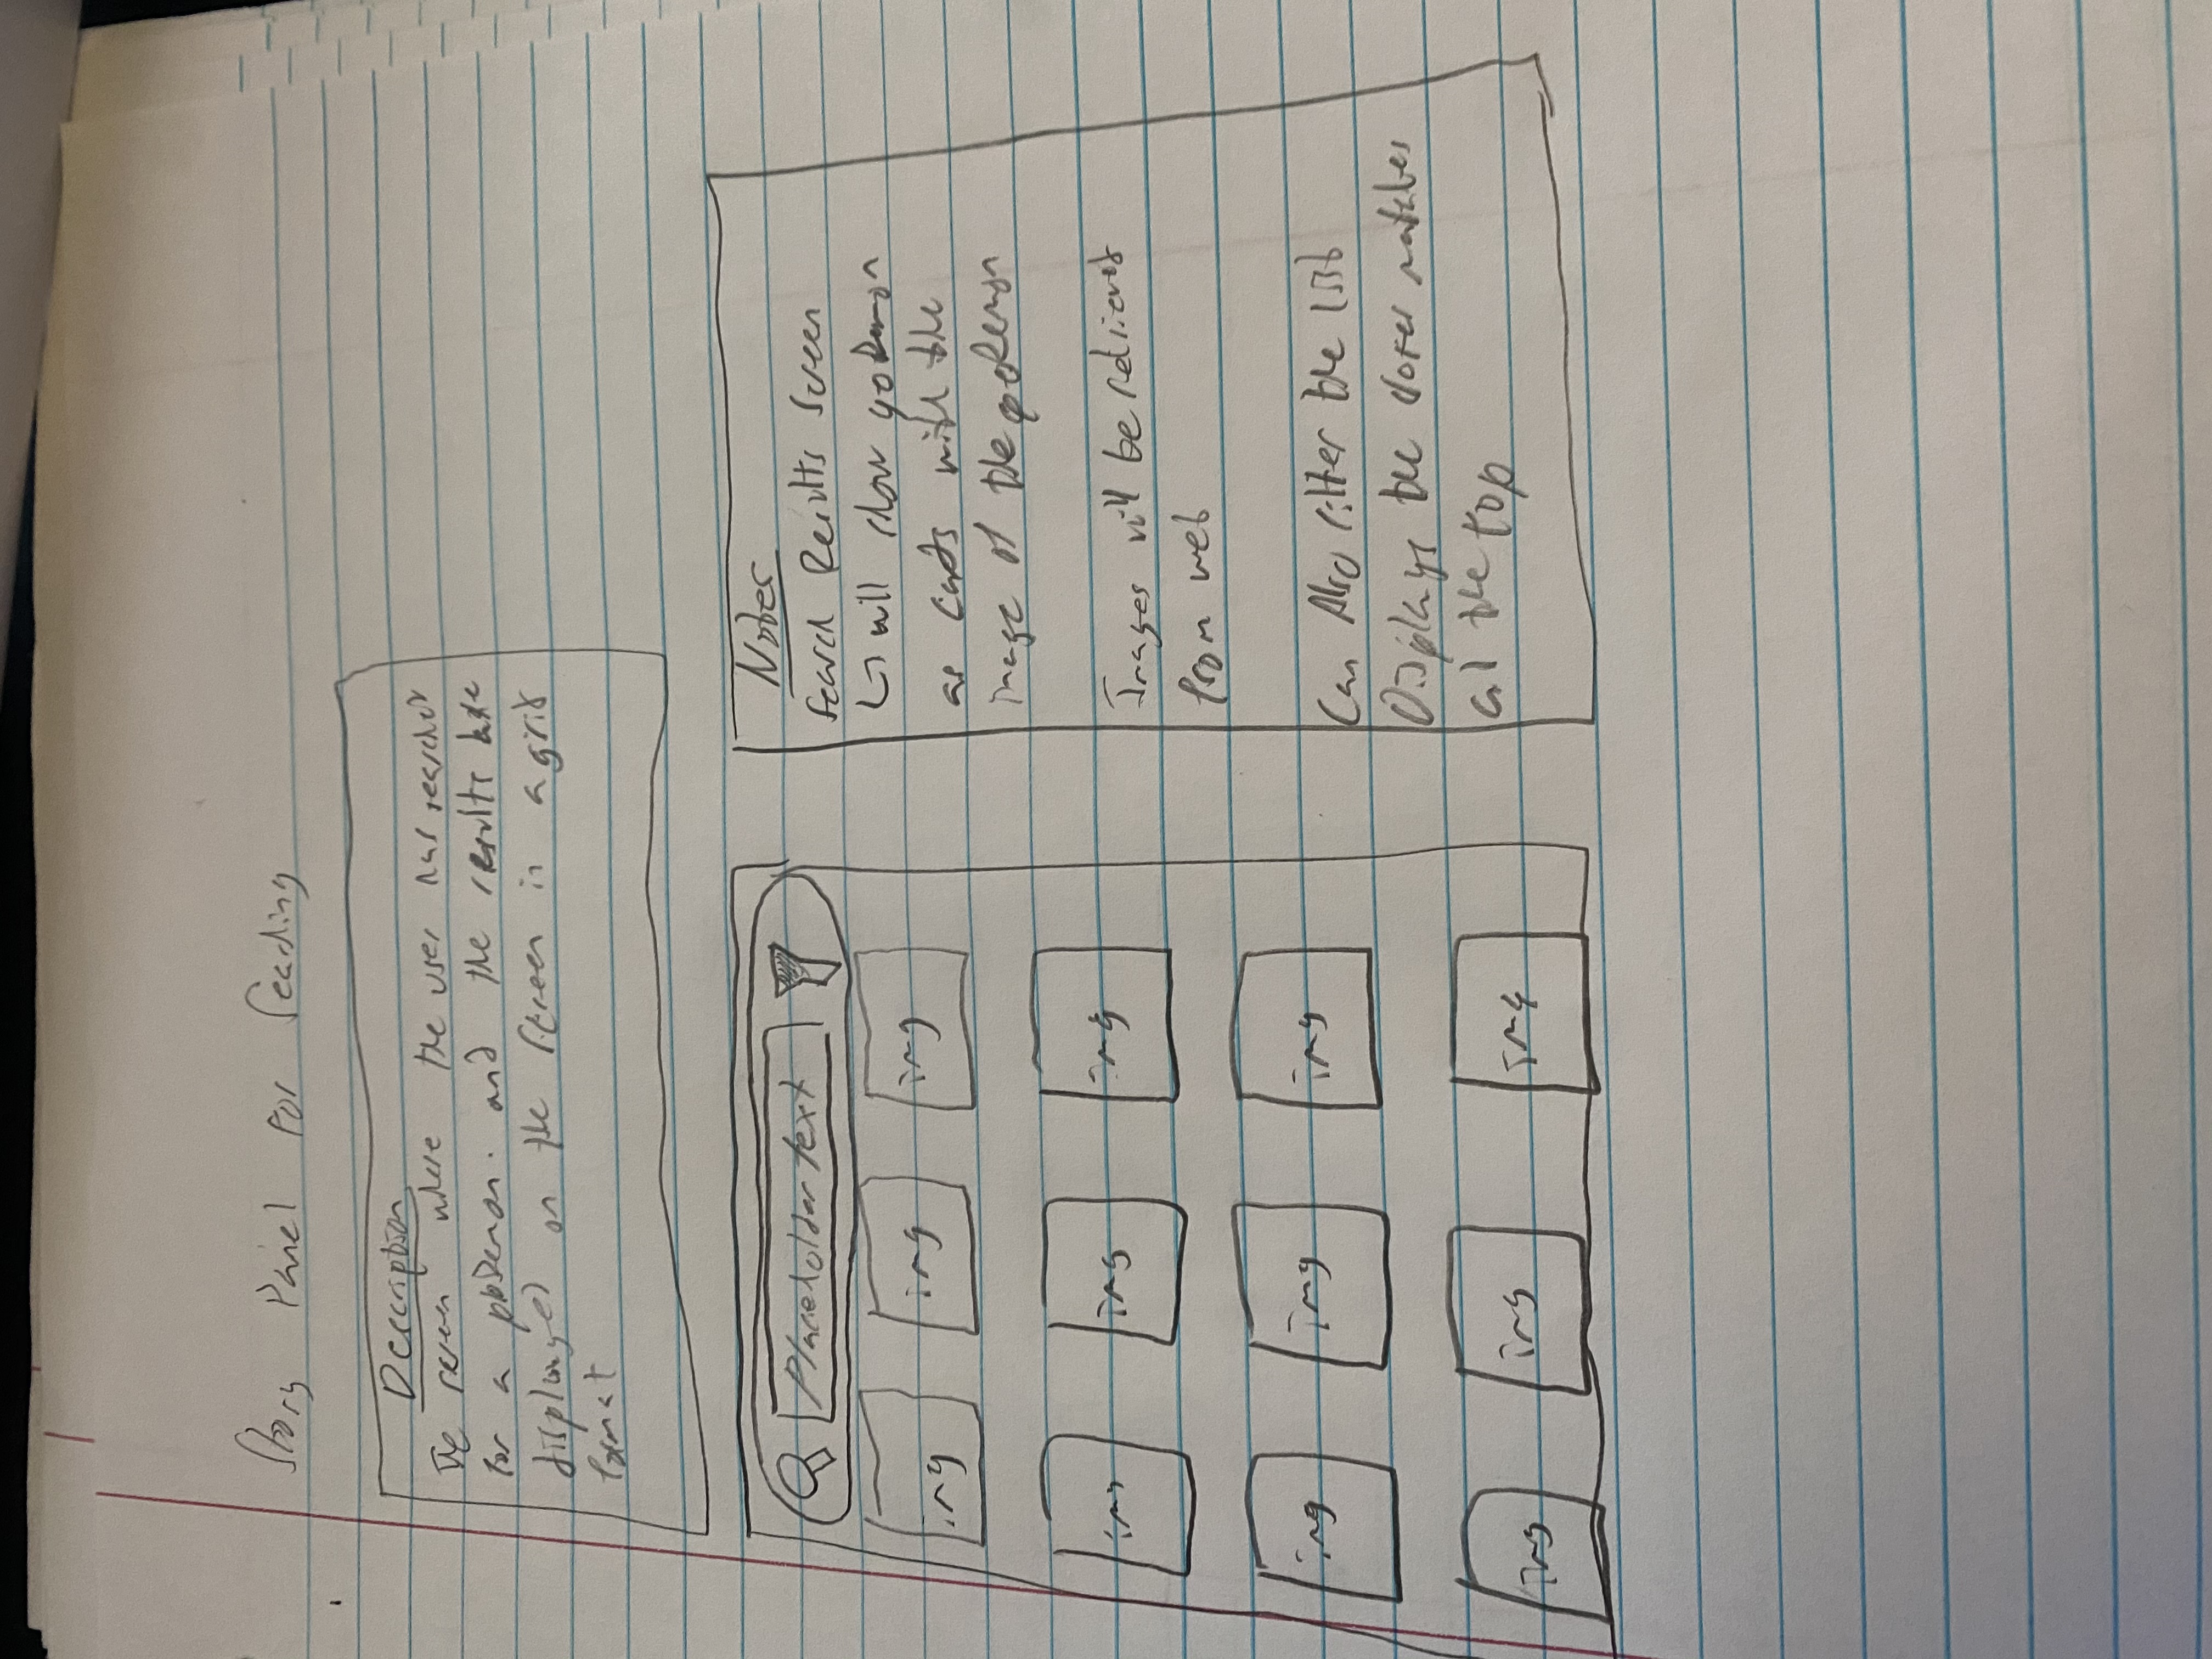 Story Panel For Seaching
Description
The screen where the user has searched
for a pokemon. and the results are
displayed on the screen in a grid
format
Placeholder text
img img img
img img img
img img img
img img img
Notes
Search Results Screen
↳ will show pokemon
as cards with the
image of the pokemon
Images will be retrieved
from web
Can Also filter the list
Displays the closes matches
at the top